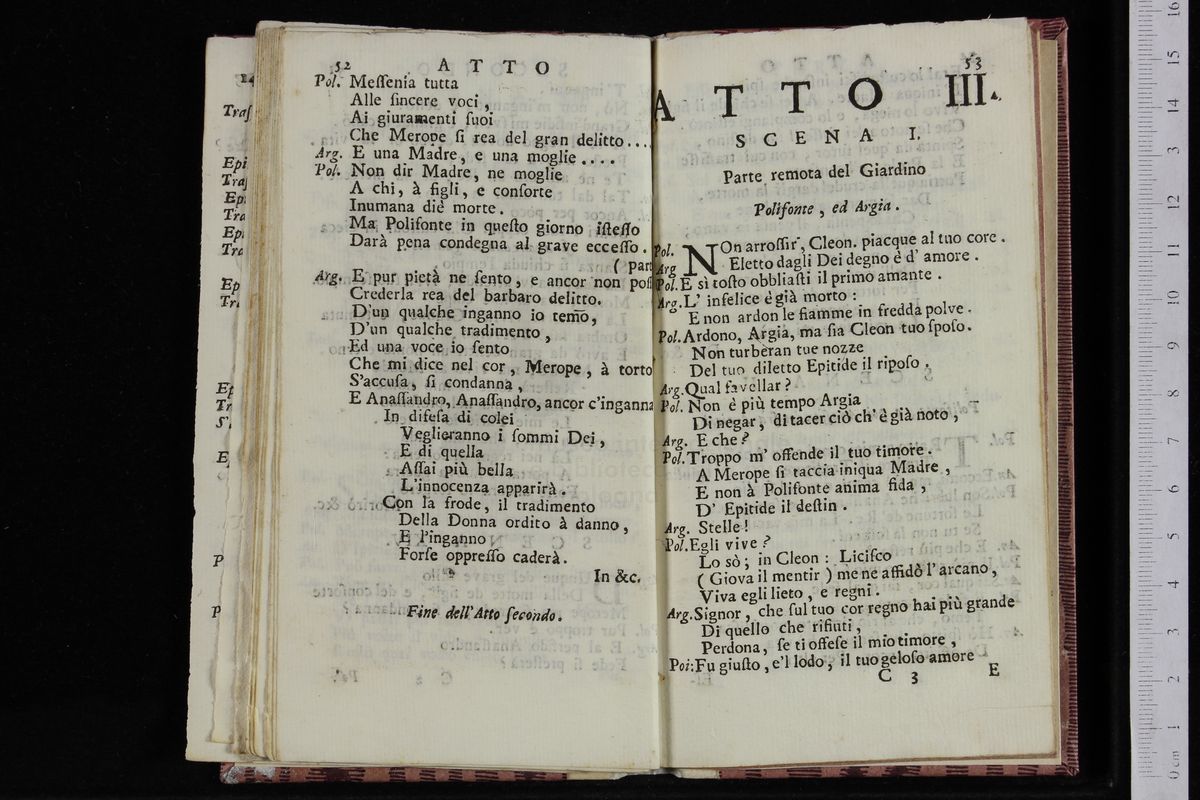 52 ATTO
Pol. Meſſenia tutta
Alle ſincere voci,
Ai giuramenti ſuoi
Che Merope ſi rea del gran delitto...
Arg. E una Madre, e una moglie ....
Pol. Non dir Madre, ne moglie
A chi, à figli, e conſorte
Inumana diè morte.
Ma Polifonte in queſto giorno iſteſſo
Darà pena condegna al grave ecceſſo.
( part
Arg. E pur pietà ne ſento, e ancor non poſſ
Crederla rea del barbaro delitto.
D'un qualche inganno io temo,
D'un qualche tradimento,
Ed una voce io ſento
Che mi dice nel cor, Merope, à torto
S'accuſa, ſi condanna,
E Anaſſandro, Anaſſandro, ancor c'inganna
In difeſa di colei
Veglieranno i ſommi Dei,
E di quella
Aſſai più bella
L'innocenza apparirà.
Con la frode, il tradimento
Della Donna ordito à danno,
E l'inganno
Forſe oppreſſo caderà.
In &c.
Fine dell'Atto ſecondo.
53
ATTO III.
SCENA I.
Parte remota del Giardino
Polifonte, ed Argia.
Pol. NOn arroſſir, Cleon. piacque al tuo core.
Arg Eletto dagli Dei degno è d'amore.
Pol. E sì toſto obbliaſti il primo amante.
Arg. L'infelice è già morto:
E non ardon le fiamme in fredda polve.
Pol. Ardono, Argia, ma ſia Cleon tuo ſpoſo.
Non turberan tue nozze
Del tuo diletto Epitide il ripoſo.
Arg. Qual favellar?
Pol. Non è più tempo Argia
Di negar, di tacer ciò ch'è già noto,
Arg. E che?
Pol. Troppo m'offende il tuo timore.
A Merope ſi taccia iniqua Madre,
E non à Polifonte anima fida,
D'Epitide il deſtin.
Arg. Stelle!
Pol. Egli vive?
Lo sò; in Cleon: Liciſco
( Giova il mentir ) me ne affidò l'arcano,
Viva egli lieto, e regni.
Arg. Signor, che ſul tuo cor regno hai più grande
Di quello che rifiuti,
Perdona, ſe ti offeſe il mio timore,
Poi: Fu giuſto, e'l lodo; il tuo geloſo amore
C 3 E
Traſ
Epi
Traſ
Epi
Tra
Epi
Tra
Ep
Tr
Ep
Tr
E
P
P